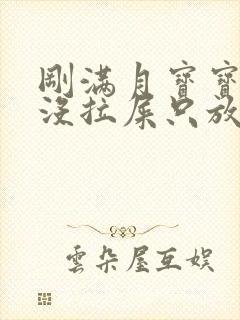 剛滿月寶寶
沒拉屎只放
雲朵屋互娱